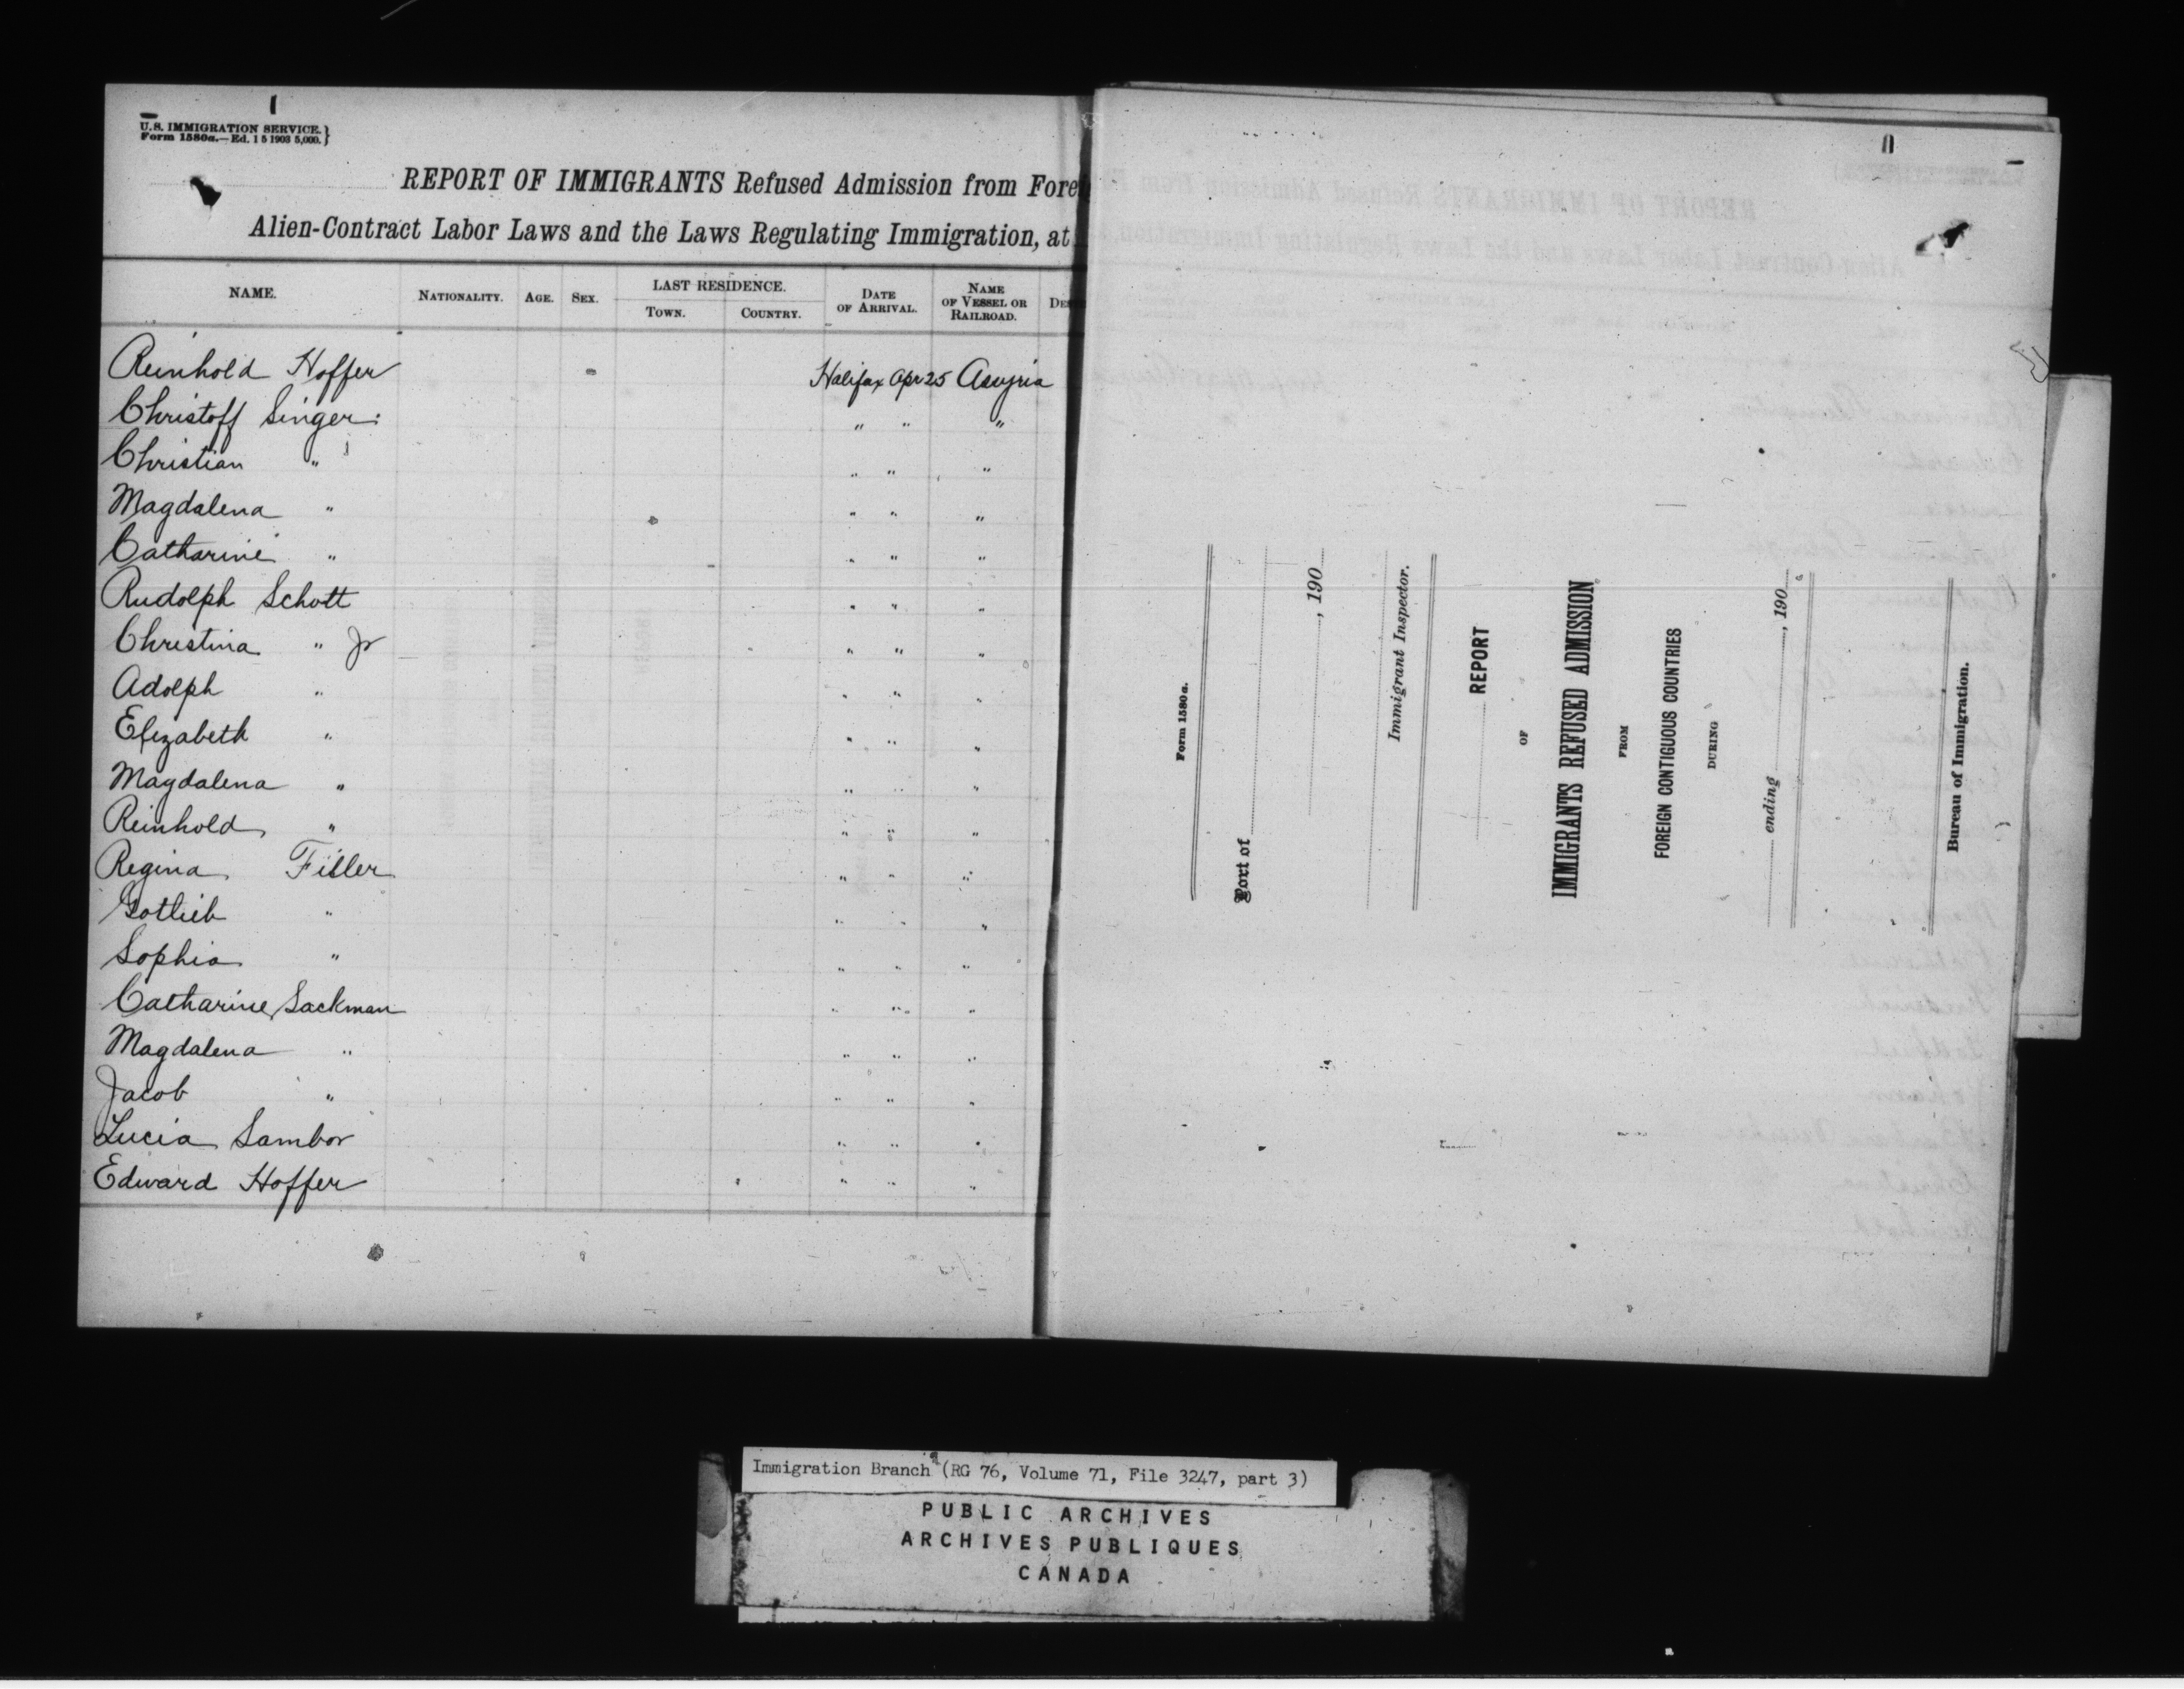 U.S. IMMIGRATION SERVICE.}
Form 1580a.—Ed. 1 5 1903 5,000.}
REPORT OF IMMIGRANTS Refused Admission from Forei
Alien-Contract Labor Laws and the Laws Regulating Immigration, at
NAME. NATIONALITY. AGE. SEX. LAST RESIDENCE. TOWN. COUNTRY. DATE OF ARRIVAL. NAME OF VESSEL OR RAILROAD. DES
Reinhold Hoffer Halifax Apr 25 Assyria
Christoff Singer " " "
Christian " " " "
Magdalena " " " "
Catharine " " " "
Rudolph Schott " " "
Christina " Jr " " "
Adolph " " " "
Elizabeth " " " "
Magdalena " " " "
Reinhold " " " "
Regina Filler " " "
Gotlieb " " " "
Sophia " " " "
Catharine Sackman " " "
Magdalena " " " "
Jacob " " " "
Lucia Sambor " " "
Edward Hoffer " " "
Form 1580a.
Port of
, 190
Immigrant Inspector.
REPORT
OF
IMMIGRANTS REFUSED ADMISSION
FROM
FOREIGN CONTIGUOUS COUNTRIES
DURING
ending , 190
Bureau of Immigration.
Immigration Branch (RG 76, Volume 71, File 3247, part 3)
PUBLIC ARCHIVES
ARCHIVES PUBLIQUES
CANADA